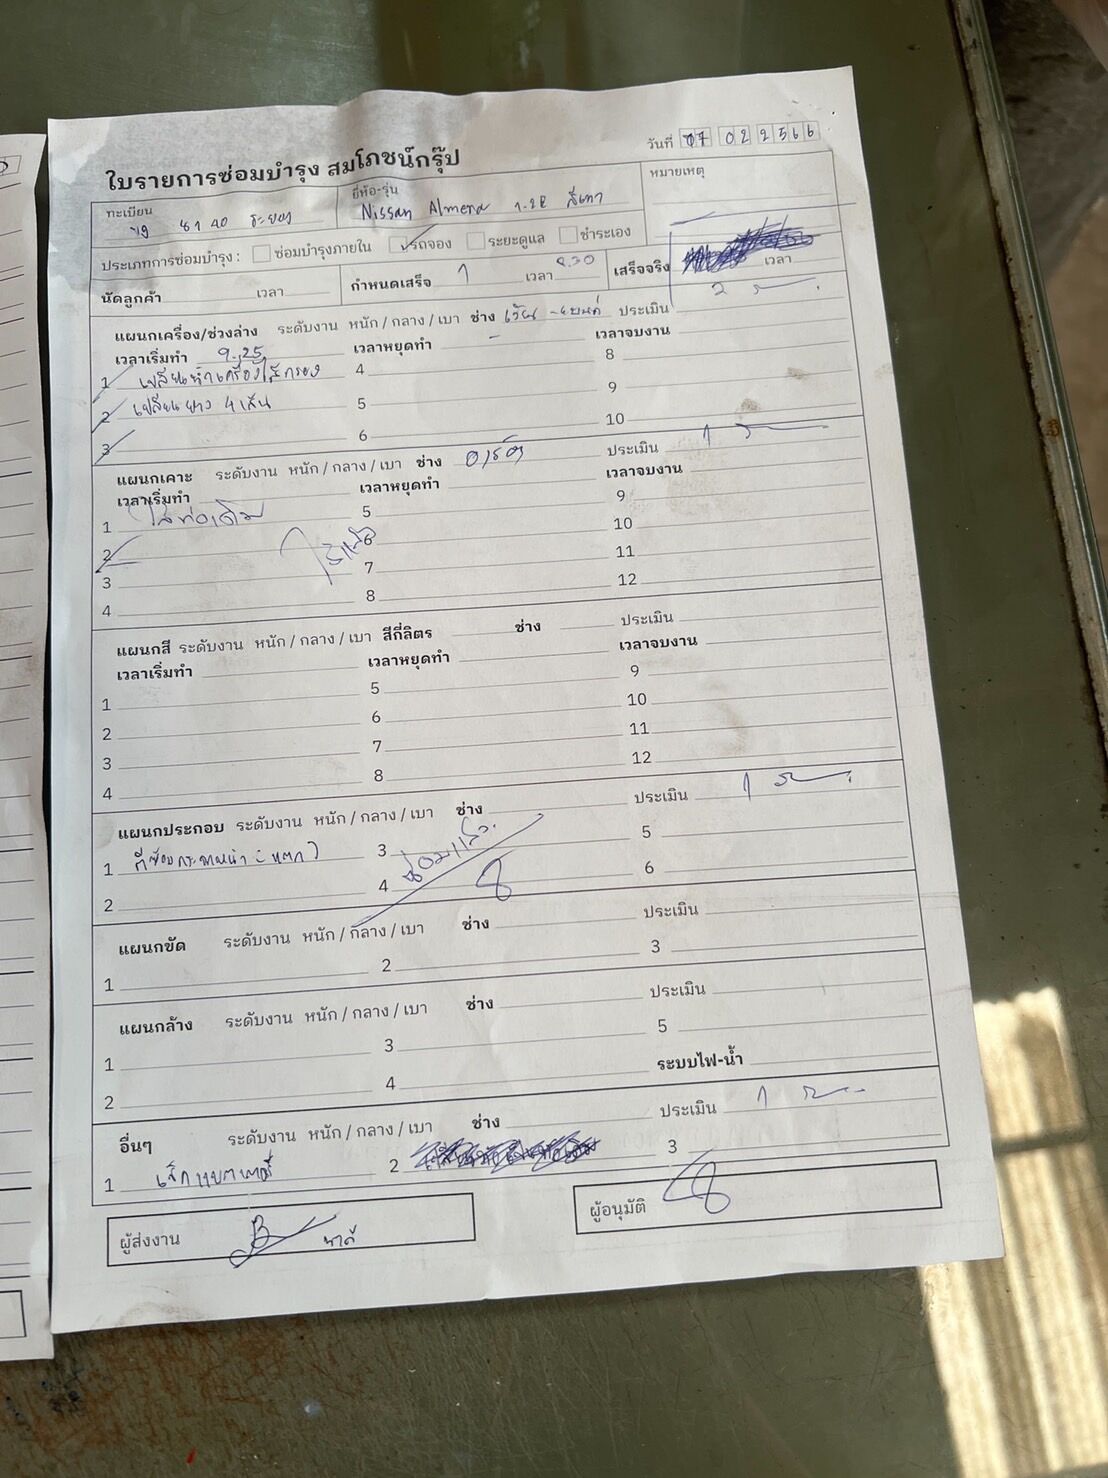 วันที่ 07 02 2566
ใบรายการซ่อมบำรุง สมโภชน์กรุ๊ป
ทะเบียน ยี่ห้อ-รุ่น หมายเหตุ
40 ระยอง Nissan Almera 1.2E สีเทา
ประเภทการซ่อมบำรุง : ซ่อมบำรุงภายใน รถจอง ระยะดูแล ชำระเอง
นัดลูกค้า เวลา กำหนดเสร็จ 1 เวลา 8.30 เสร็จจริง เวลา
แผนกเครื่อง/ช่วงล่าง ระดับงาน หนัก / กลาง / เบา ช่าง ประเมิน 2
เวลาเริ่มทำ 9.25 เวลาหยุดทำ - เวลาจบงาน
1 เปลี่ยนน้ำเครื่อง ไส้กรอง 4 8
2 เปลี่ยนยาง 4 เส้น 5 9
3 6 10
แผนกเคาะ ระดับงาน หนัก / กลาง / เบา ช่าง ประเมิน 1
เวลาเริ่มทำ เวลาหยุดทำ เวลาจบงาน
1 ใส่ท่อเดิม 5 9
2 6 10
3 7 11
4 8 12
แผนกสี ระดับงาน หนัก / กลาง / เบา สีกี่ลิตร ช่าง ประเมิน
เวลาเริ่มทำ เวลาหยุดทำ เวลาจบงาน
1 5 9
2 6 10
3 7 11
4 8 12
แผนกประกอบ ระดับงาน หนัก / กลาง / เบา ช่าง ประเมิน 1
1 3 ซ่อมแล้ว 5
2 4 6
แผนกขัด ระดับงาน หนัก / กลาง / เบา ช่าง ประเมิน
1 2 3
แผนกล้าง ระดับงาน หนัก / กลาง / เบา ช่าง ประเมิน
1 3 5
2 4 ระบบไฟ-น้ำ
อื่นๆ ระดับงาน หนัก / กลาง / เบา ช่าง ประเมิน 1
1 เช็กแบตเตอรี่ 2 3
ผู้ส่งงาน ผู้อนุมัติ